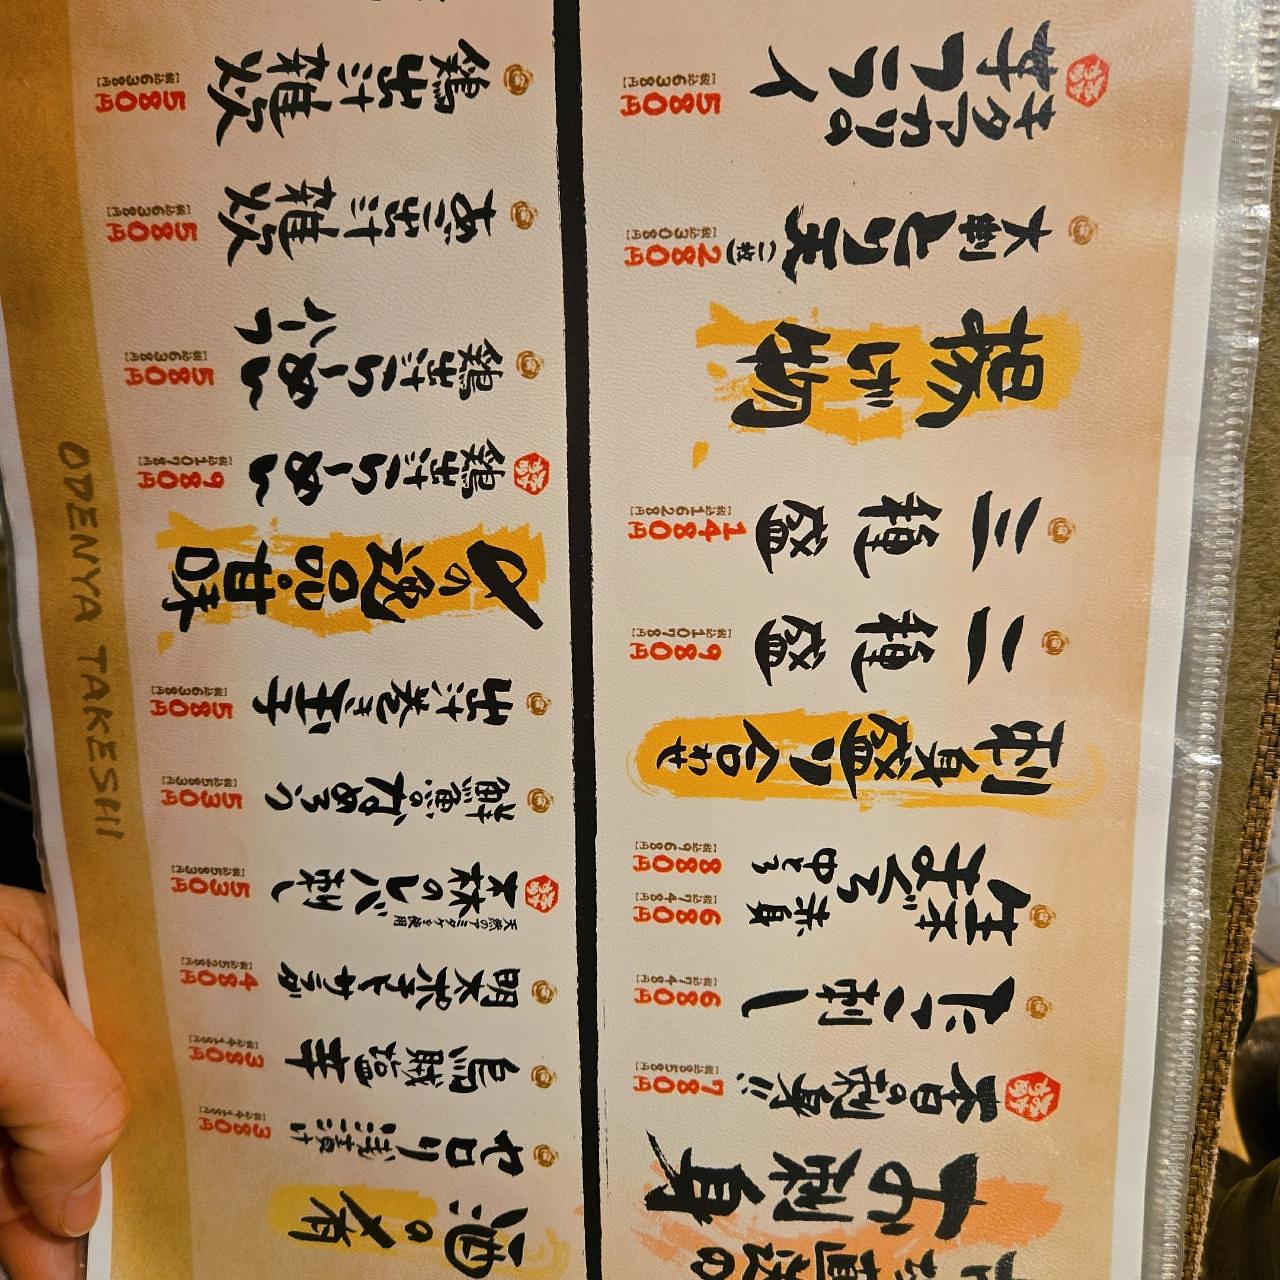 直送の
お刺身
本日の刺身!!
780円
[税込858円]
たこ刺し
680円
[税込748円]
生本まぐろ
赤身
680円
[税込748円]
中とろ
880円
[税込968円]
刺身盛り合わせ
二種盛
980円
[税込1078円]
三種盛
1480円
[税込1628円]
揚げ物
大判とり天(一枚)
280円
[税込308円]
キタアカリの
芋フライ
580円
[税込638円]
酒の肴
セロリ浅漬け
380円
[税込418円]
烏賊塩辛
380円
[税込418円]
明太ポテトサラダ
480円
[税込528円]
天然のアミタケを使用
森のレバ刺し
530円
[税込583円]
鮮魚のなめろう
530円
[税込583円]
出汁巻き玉子
580円
[税込638円]
〆の逸品・甘味
鶏出汁らーめん
980円
[税込1078円]
鶏出汁らーめん
ハーフ
580円
[税込638円]
あご出汁雑炊
580円
[税込638円]
鶏出汁雑炊
580円
[税込638円]
ODENYA TAKESHI